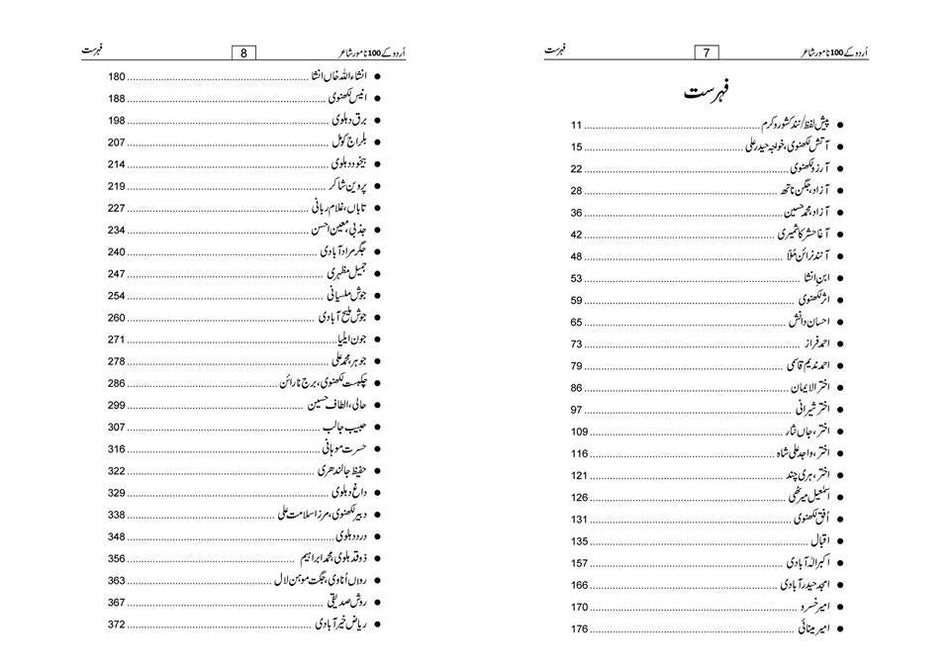 اُردو کے 100 نامور شاعر 7 فہرست
فہرست
● پیش لفظ/نند کشور وکرم 11
● آتش لکھنوی، خواجہ حیدر علی 15
● آرزو لکھنوی 22
● آزاد، جگن ناتھ 28
● آزاد، محمد حسین 36
● آغا حشر کاشمیری 42
● آنند نرائن مُلّا 48
● ابنِ انشا 53
● اثر لکھنوی 59
● احسان دانش 65
● احمد فراز 73
● احمد ندیم قاسمی 79
● اختر الایمان 86
● اختر شیرانی 97
● اختر، جاں نثار 109
● اختر، واجد علی شاہ 116
● اختر، ہری چند 121
● اسمٰعیل میرٹھی 126
● اُفق لکھنوی 131
● اقبال 135
● اکبر الہٰ آبادی 157
● امجد حیدر آبادی 166
● امیر خسرو 170
● امیر مینائی 176
اُردو کے 100 نامور شاعر 8 فہرست
● انشاء اللہ خاں انشا 180
● انیس لکھنوی 188
● برق دہلوی 198
● بلراج کومل 207
● بیخود دہلوی 214
● پروین شاکر 219
● تاباں، غلام ربانی 227
● جذبی، معین احسن 234
● جگر مراد آبادی 240
● جمیل مظہری 247
● جوش ملسیانی 254
● جوش ملیح آبادی 260
● جون ایلیا 271
● جوہر، محمد علی 278
● چکبست لکھنوی، برج نارائن 286
● حالی، الطاف حسین 299
● حبیب جالب 307
● حسرت موہانی 316
● حفیظ جالندھری 322
● داغ دہلوی 329
● دبیر لکھنوی، مرزا سلامت علی 338
● درد دہلوی 348
● ذوق دہلوی، محمد ابراہیم 356
● رواں اُناوی، جگت موہن لال 363
● روش صدیقی 367
● ریاض خیر آبادی 372